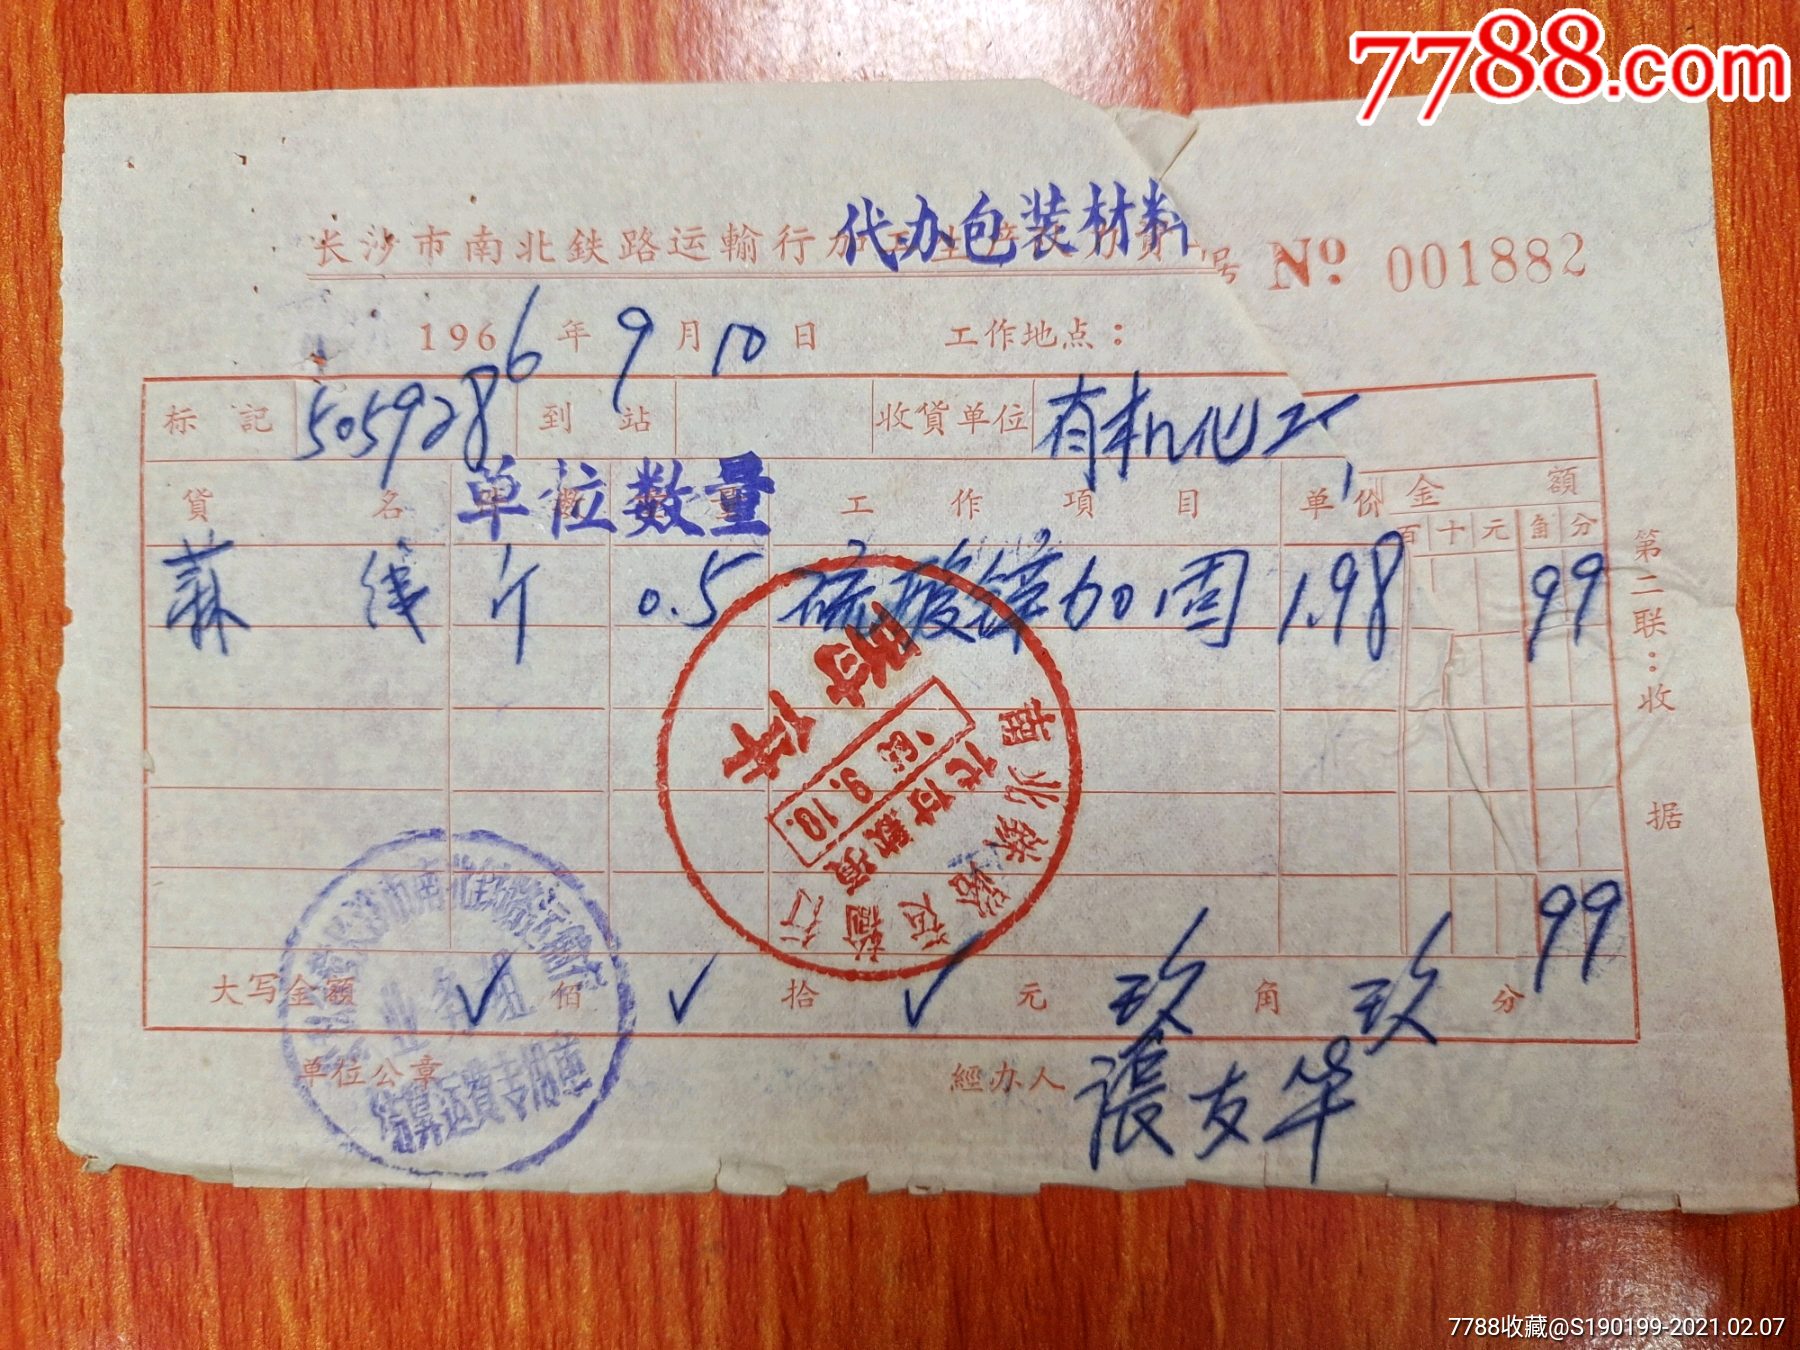 7788.com
长沙市南北鉄路运輸行 代办包装材料 号 No 001882
1966年9月10日 工作地点：
标記 505928 到站 收貨单位 有机化工厂
貨名 单位数量 工作項目 单价 金額
百十元角分
蔴线 斤 0.5 硫酸锌加固 1.98 99
99
大写金額 佰 拾 元 玖角 玖分
单位公章 經办人 張友华
第二联：收据
南北鉄路运輸行
代付款項
9.10.
附件
业务组
结算运費专用章
7788收藏@S190199-2021.02.07